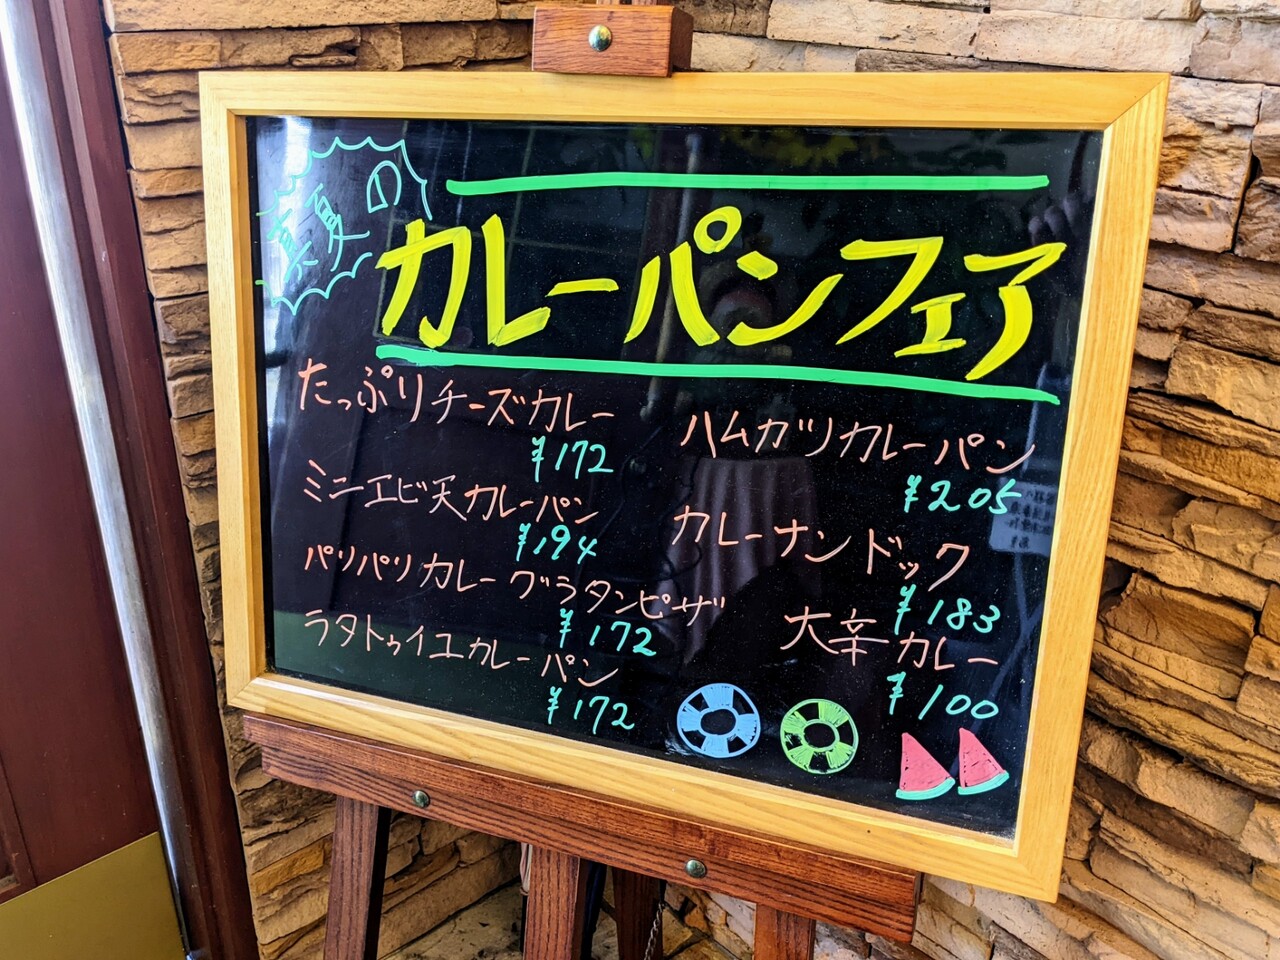 真夏の
カレーパンフェア
たっぷりチーズカレー
¥172
ミニエビ天カレーパン
¥194
パリパリカレーグラタンピザ
¥172
ラタトゥイユカレーパン
¥172
ハムカツカレーパン
¥205
カレーナンドック
¥183
大辛カレー
¥100